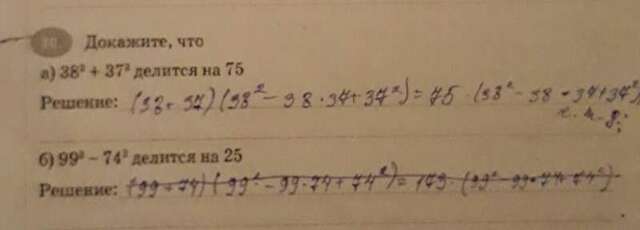 Докажите, что
а) 38³ + 37³ делится на 75
Решение: (38 + 37)(38² - 38 · 37 + 37²) = 75 · (38² - 38 · 37 + 37²)
ч. т. д.
б) 99³ – 74³ делится на 25
Решение: (99 + 74)(99² - 99 · 74 + 74²) = 173 · (99² - 99 · 74 + 74²)